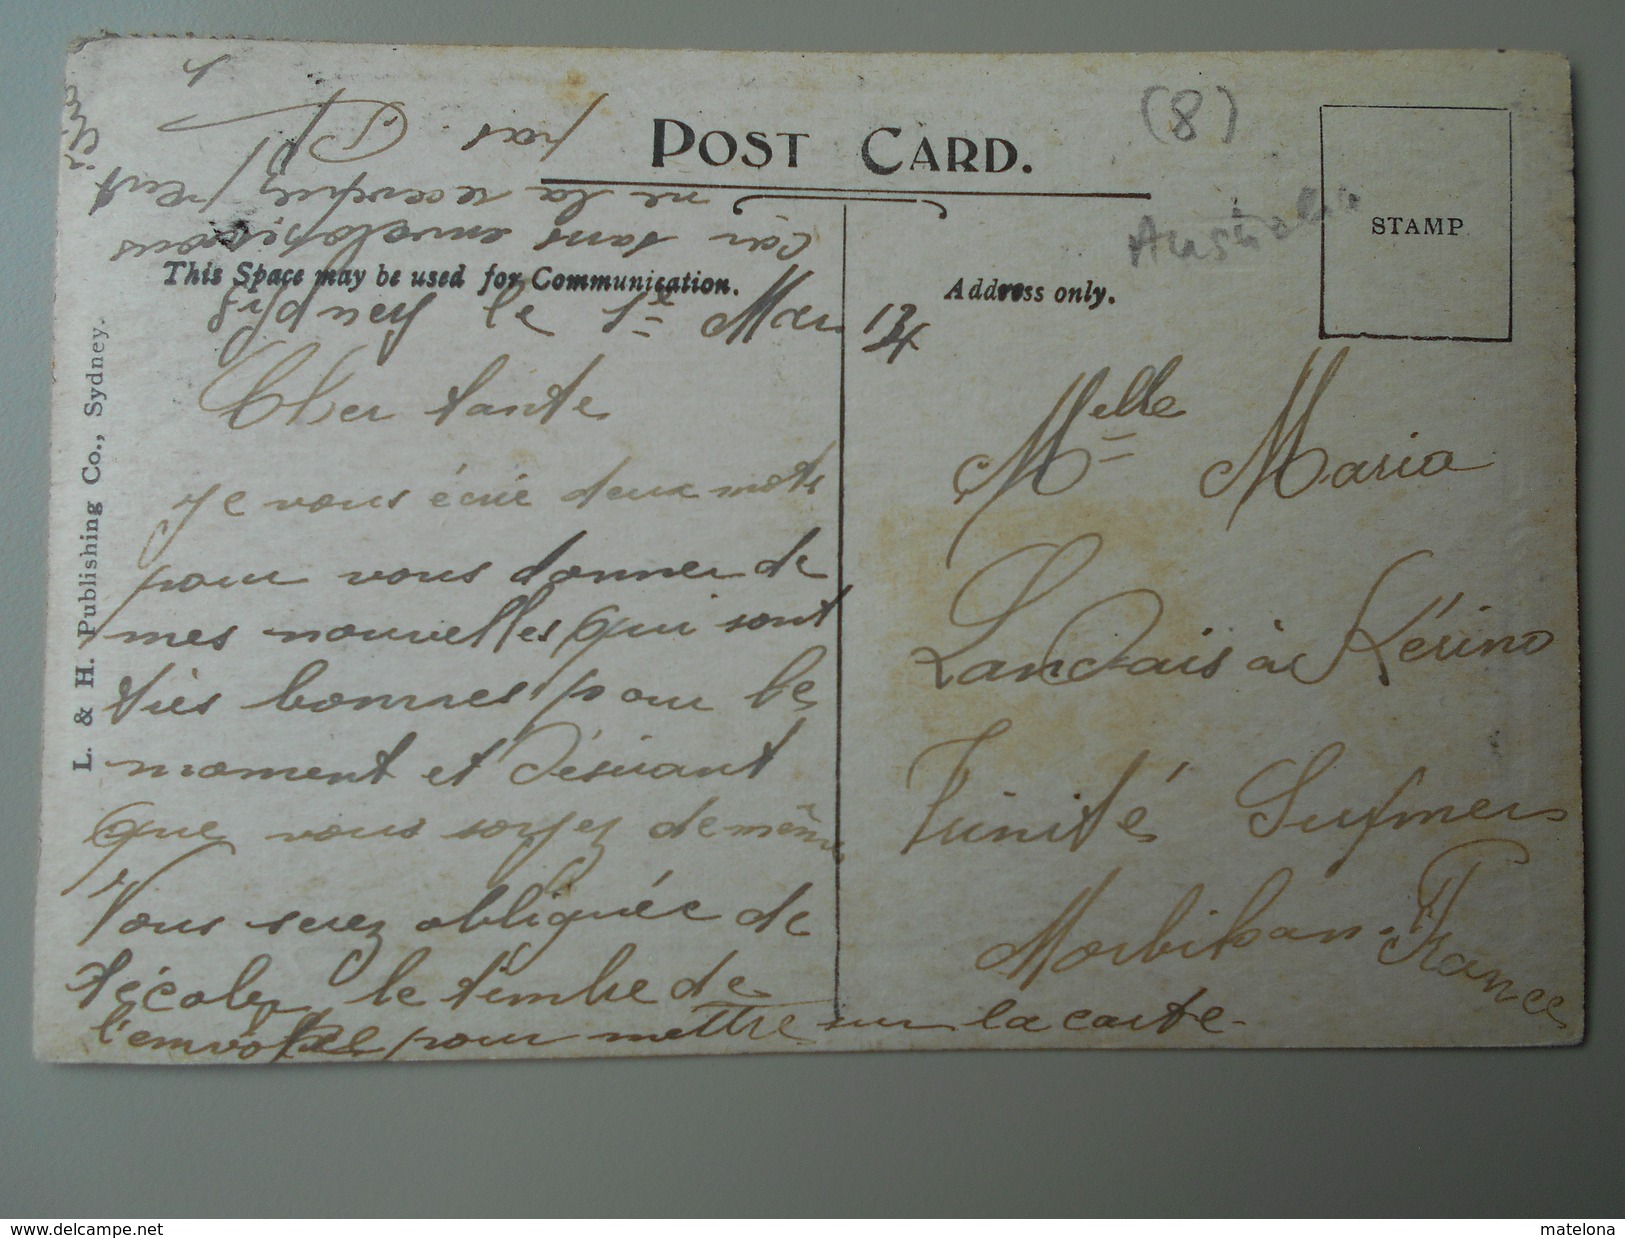 POST CARD.
(8)
Australie
STAMP
This Space may be used for Communication.
Address only.
L. & H. Publishing Co., Sydney.
Sydney le 1er Mars 14
Cher tante
je vous écrie deux mots
pour vous donner de
mes nouvelles qui sont
très bonnes pour le
moment et désirant
que vous soyez de même
Vous serez obligée de
décoler le timbre de
l'envoloppe pour mettre sur la carte.
Car sans enveloppe vous
ne la recevriez peut
pas
Melle Maria
Landais à Kérino
Trinité Surfmer
Morbihan. France
www.delcampe.net
matelona